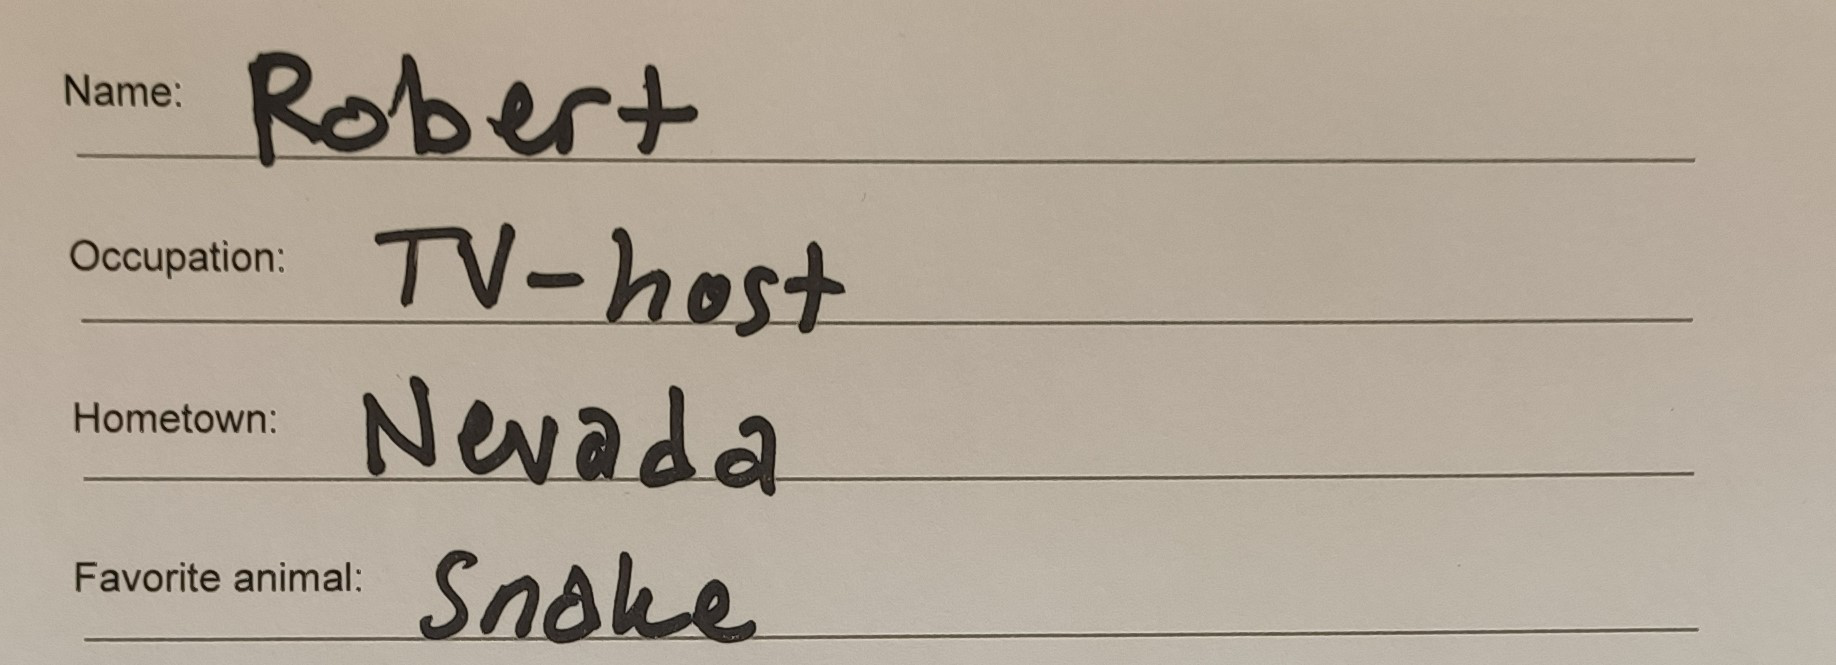 Name: Robert
Occupation: TV-host
Hometown: Nevada
Favorite animal: Snake